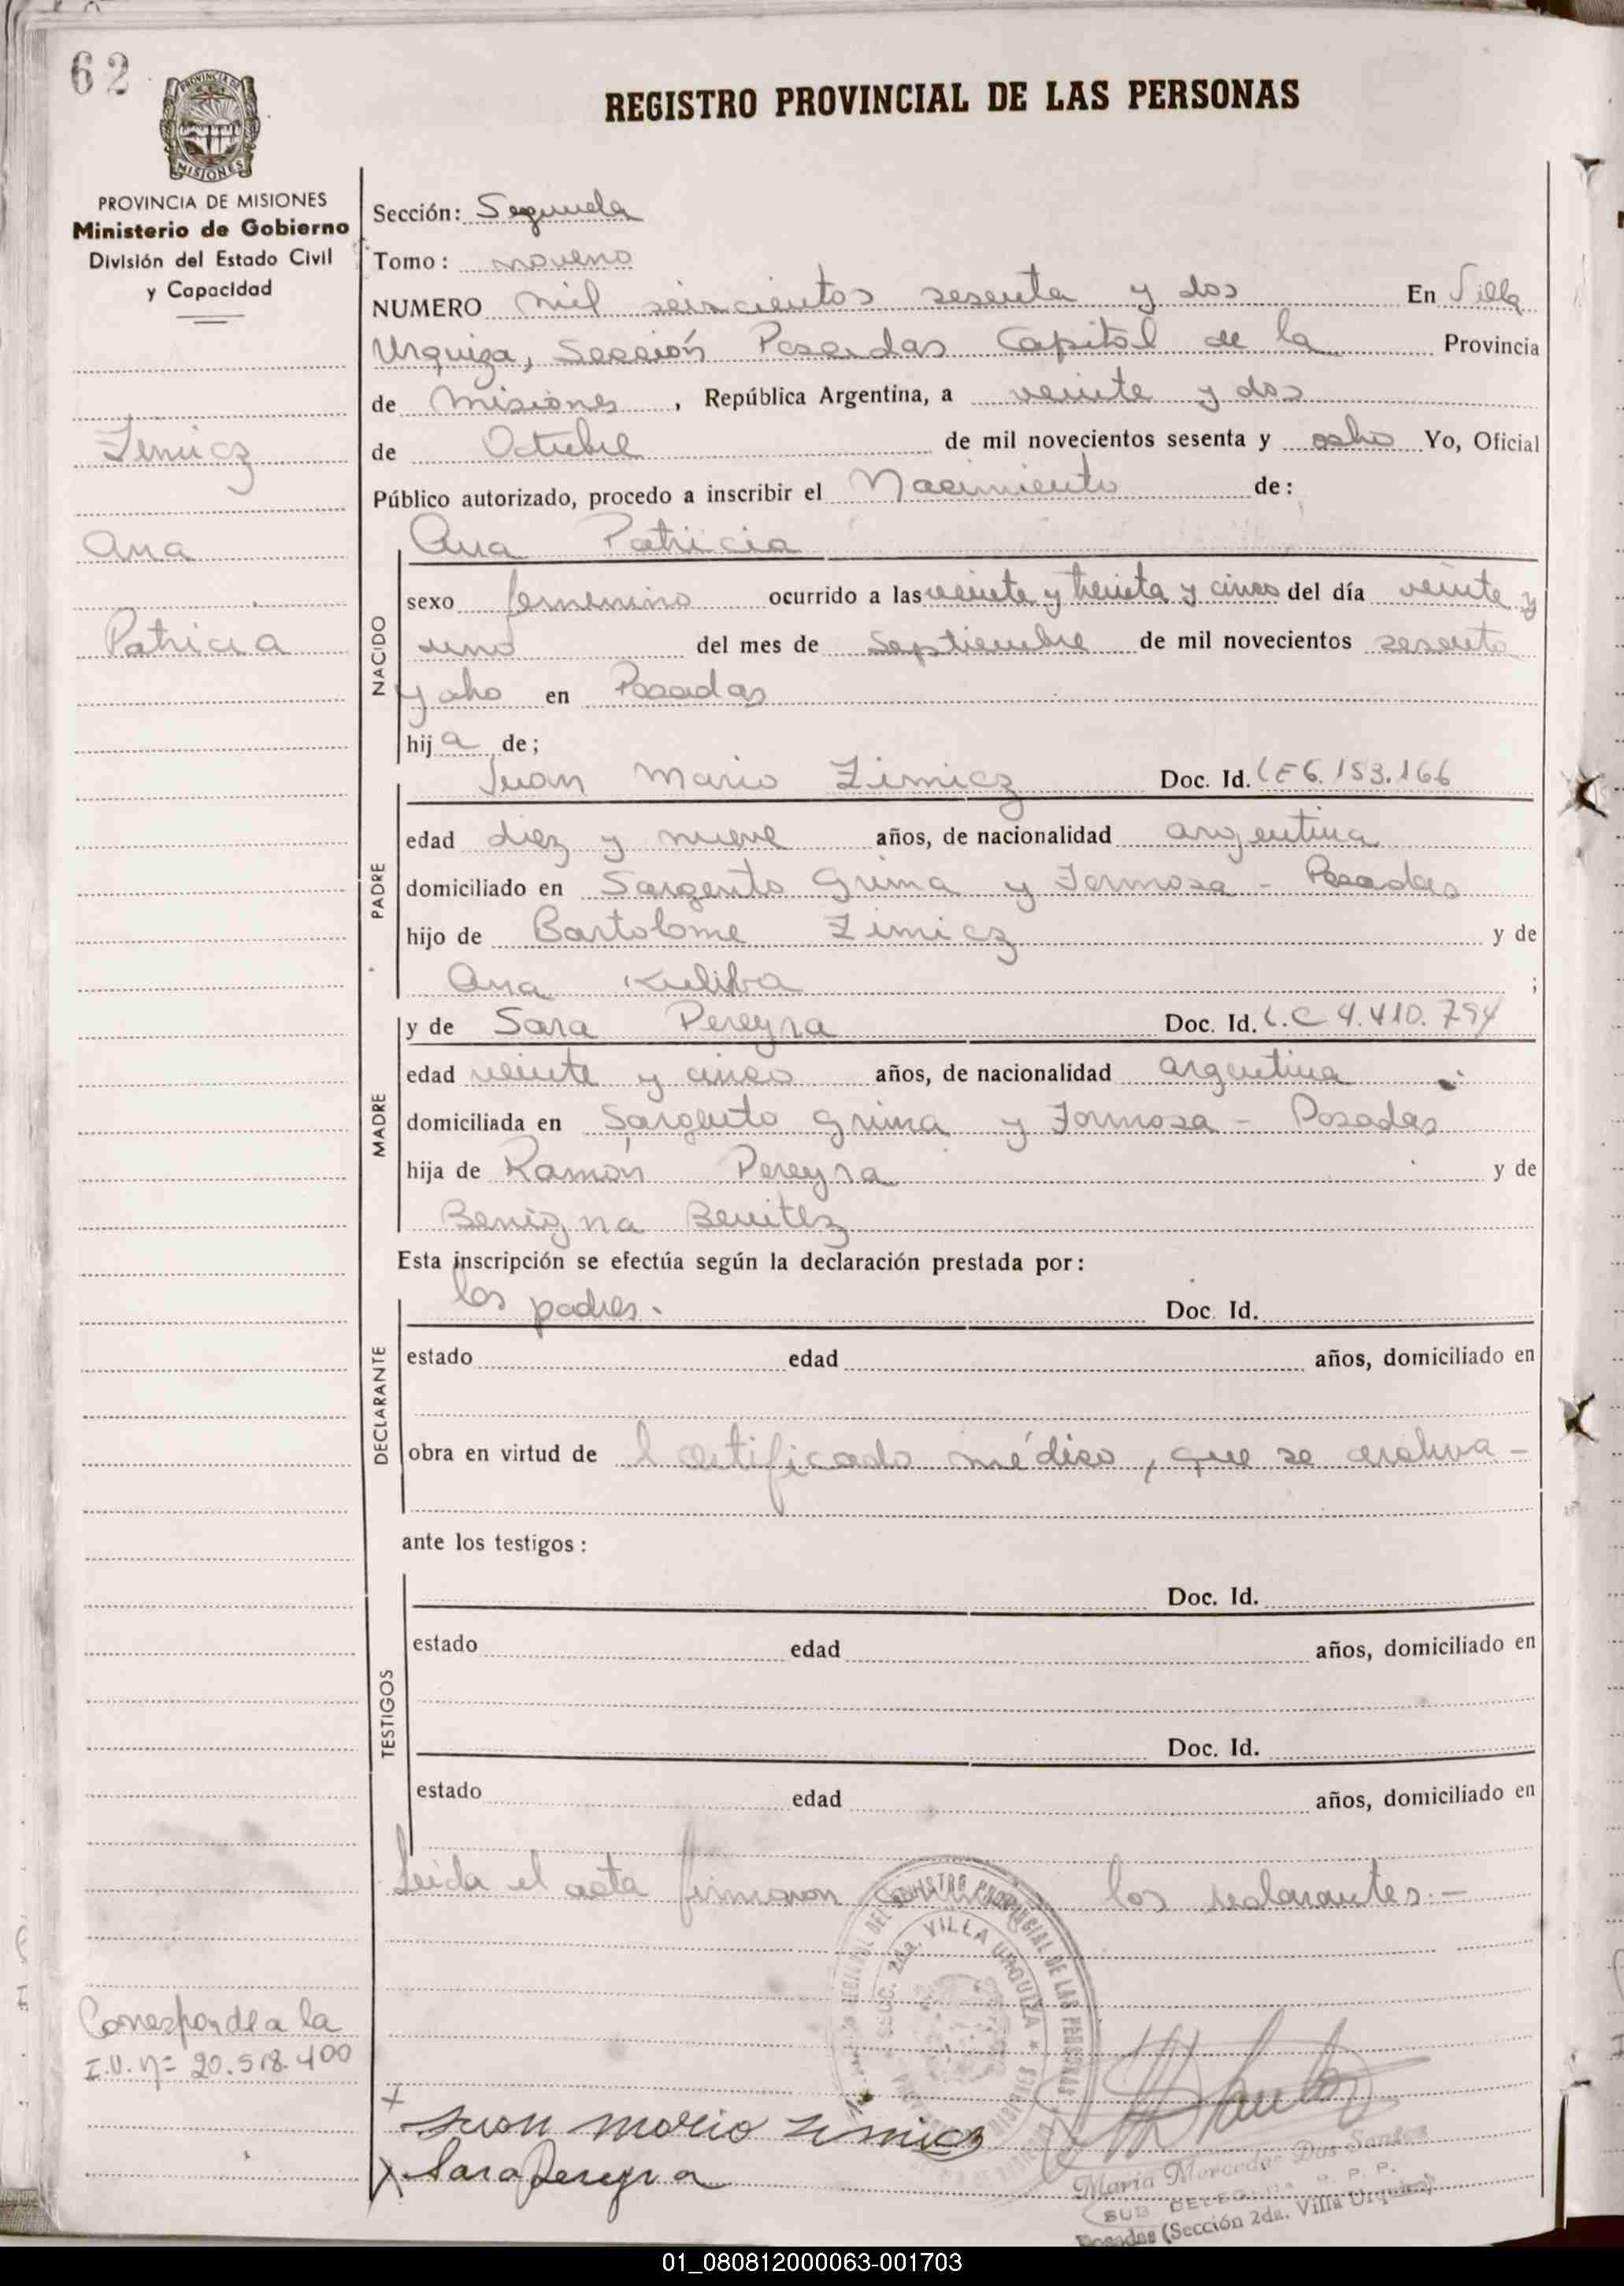 62
PROVINCIA DE
MISIONES
REGISTRO PROVINCIAL DE LAS PERSONAS
PROVINCIA DE MISIONES
Ministerio de Gobierno
División del Estado Civil
y Capacidad
Zimicz
Ana
Patricia
Sección: Segunda
Tomo: noveno
NUMERO mil seiscientos sesenta y dos En Villa
Urquiza, Sección Posadas Capital de la Provincia
de Misiones, República Argentina, a veinte y dos
de Octubre de mil novecientos sesenta y ocho Yo, Oficial
Público autorizado, procedo a inscribir el Nacimiento de:
Ana Patricia
NACIDO
sexo femenino ocurrido a las veinte y treinta y cinco del día veinte y
uno del mes de Septiembre de mil novecientos sesenta
y ocho en Posadas
hija de;
Juan Mario Zimicz Doc. Id. LE 6.153.166
PADRE
edad diez y nueve años, de nacionalidad argentina
domiciliado en Sargento Grima y Formosa - Posadas
hijo de Bartolome Zimicz y de
Ana ;
y de Sara Pereyra Doc. Id. L.C 4.410.794
MADRE
edad veinte y cinco años, de nacionalidad argentina
domiciliada en Sargento Grima y Formosa - Posadas
hija de Ramón Pereyra y de
Benigna Benitez
Esta inscripción se efectúa según la declaración prestada por:
los padres. Doc. Id.
DECLARANTE
estado edad años, domiciliado en
obra en virtud de l certificado médico, que se archiva -
ante los testigos:
Doc. Id.
TESTIGOS
estado edad años, domiciliado en
Doc. Id.
estado edad años, domiciliado en
Leida el acta firmaron los declarantes.-
REGISTRO PROVINCIAL DE LAS PERSONAS
SECC. 2da. VILLA URQUIZA
Corresponde a la
I.U. nº= 20.518.400
Juan Mario Zimicz
Sara Pereyra
Maria Mercedes Dos Santos
SUB DELEGADA R. P. P.
Posadas (Sección 2da. Villa Urquiza)
01_080812000063-001703